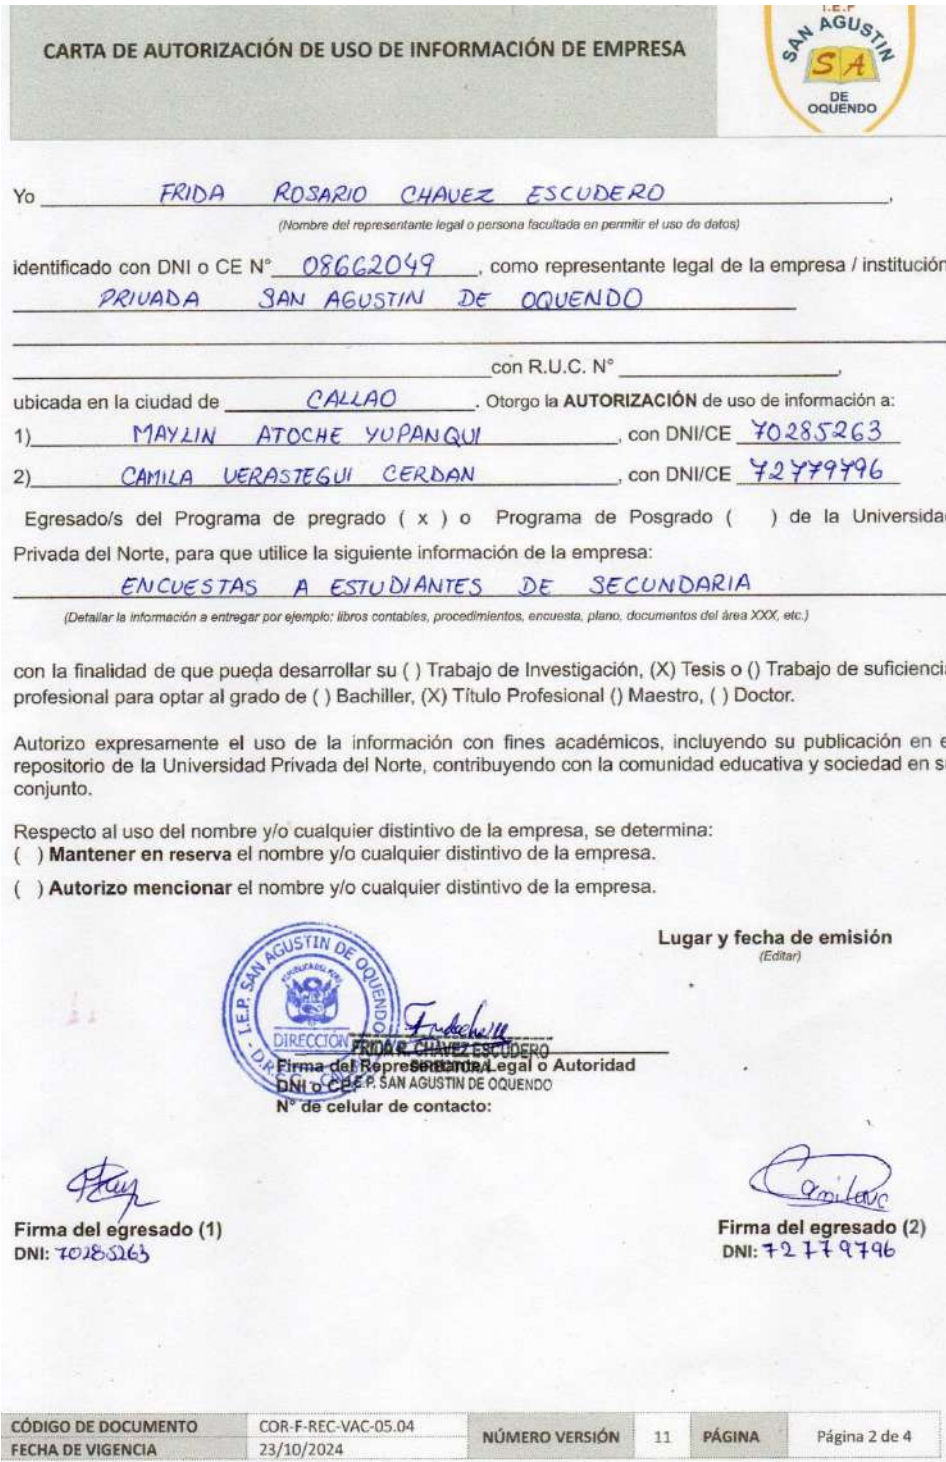 CARTA DE AUTORIZACIÓN DE USO DE INFORMACIÓN DE EMPRESA
I.E.P
SAN AGUSTIN
S A
DE
OQUENDO
Yo FRIDA ROSARIO CHAVEZ ESCUDERO,
(Nombre del representante legal o persona facultada en permitir el uso de datos)
identificado con DNI o CE N° 08662049, como representante legal de la empresa / institución
PRIVADA SAN AGUSTIN DE OQUENDO
con R.U.C. N° ,
ubicada en la ciudad de CALLAO. Otorgo la AUTORIZACIÓN de uso de información a:
1) MAYLIN ATOCHE YUPANQUI, con DNI/CE 70285263
2) CAMILA VERASTEGUI CERDAN, con DNI/CE 72779796
Egresado/s del Programa de pregrado ( x ) o Programa de Posgrado ( ) de la Universidad
Privada del Norte, para que utilice la siguiente información de la empresa:
ENCUESTAS A ESTUDIANTES DE SECUNDARIA
(Detallar la información a entregar por ejemplo: libros contables, procedimientos, encuesta, plano, documentos del área XXX, etc.)
con la finalidad de que pueda desarrollar su ( ) Trabajo de Investigación, (X) Tesis o () Trabajo de suficiencia
profesional para optar al grado de ( ) Bachiller, (X) Título Profesional () Maestro, ( ) Doctor.
Autorizo expresamente el uso de la información con fines académicos, incluyendo su publicación en e
repositorio de la Universidad Privada del Norte, contribuyendo con la comunidad educativa y sociedad en s
conjunto.
Respecto al uso del nombre y/o cualquier distintivo de la empresa, se determina:
( ) Mantener en reserva el nombre y/o cualquier distintivo de la empresa.
( ) Autorizo mencionar el nombre y/o cualquier distintivo de la empresa.
Lugar y fecha de emisión
(Editar)
I.E.P. SAN AGUSTIN DE OQUENDO
REPUBLICA DEL PERU
DIRECCIÓN
FRIDA R. CHAVEZ ESCUDERO
DIRECTORA
Firma del Representante Legal o Autoridad
I.E.P. SAN AGUSTIN DE OQUENDO
DNI o CE
N° de celular de contacto:
Firma del egresado (1)
DNI: 70285263
Camilavc
Firma del egresado (2)
DNI: 72779796
CÓDIGO DE DOCUMENTO COR-F-REC-VAC-05.04 NÚMERO VERSIÓN 11 PÁGINA Página 2 de 4
FECHA DE VIGENCIA 23/10/2024